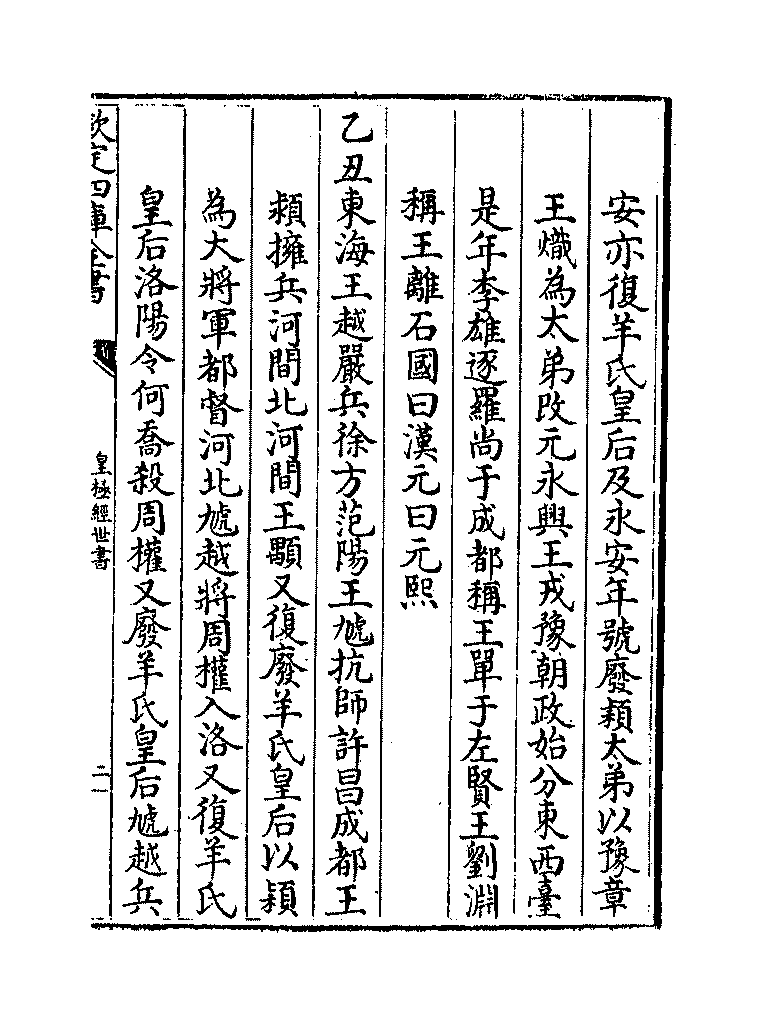 安亦復羊氏皇后及永安年號廢穎太弟以豫章
王熾為太弟改元永興王戎豫朝政始分東西臺
是年李雄逐羅尚于成都稱王單于左賢王劉淵
稱王離石國曰漢元曰元熙
乙丑東海王越嚴兵徐方范陽王虓抗師許昌成都王
穎擁兵河間北河間王顒又復廢羊氏皇后以穎
為大將軍都督河北虓越將周權入洛又復羊氏
皇后洛陽令何喬殺周權又廢羊氏皇后虓越兵
欽定四庫全書
皇極經世書
二一